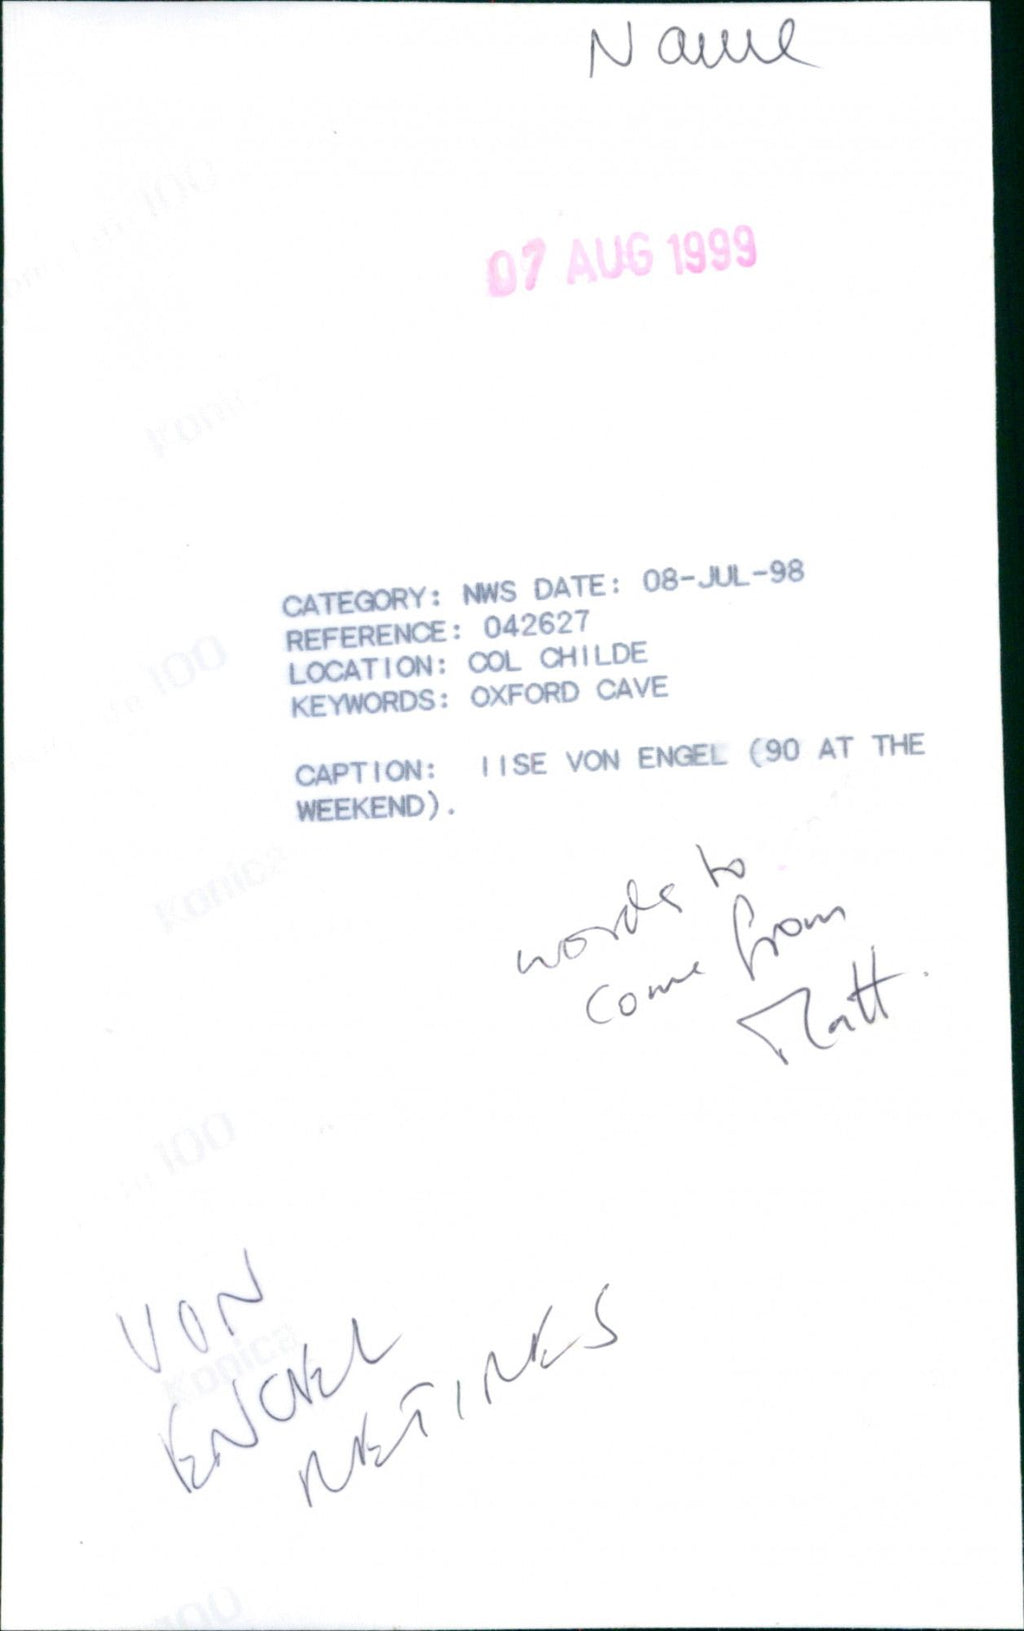 Name
07 AUG 1999
100
Konica
CATEGORY: NWS DATE: 08-JUL-98
REFERENCE: 042627
LOCATION: COL CHILDE
KEYWORDS: OXFORD CAVE
100
CAPTION: IISE VON ENGEL (90 AT THE
WEEKEND).
Konica
words to
come from
Matt.
100
VON
Konica
ENGEL
RETIRES
100